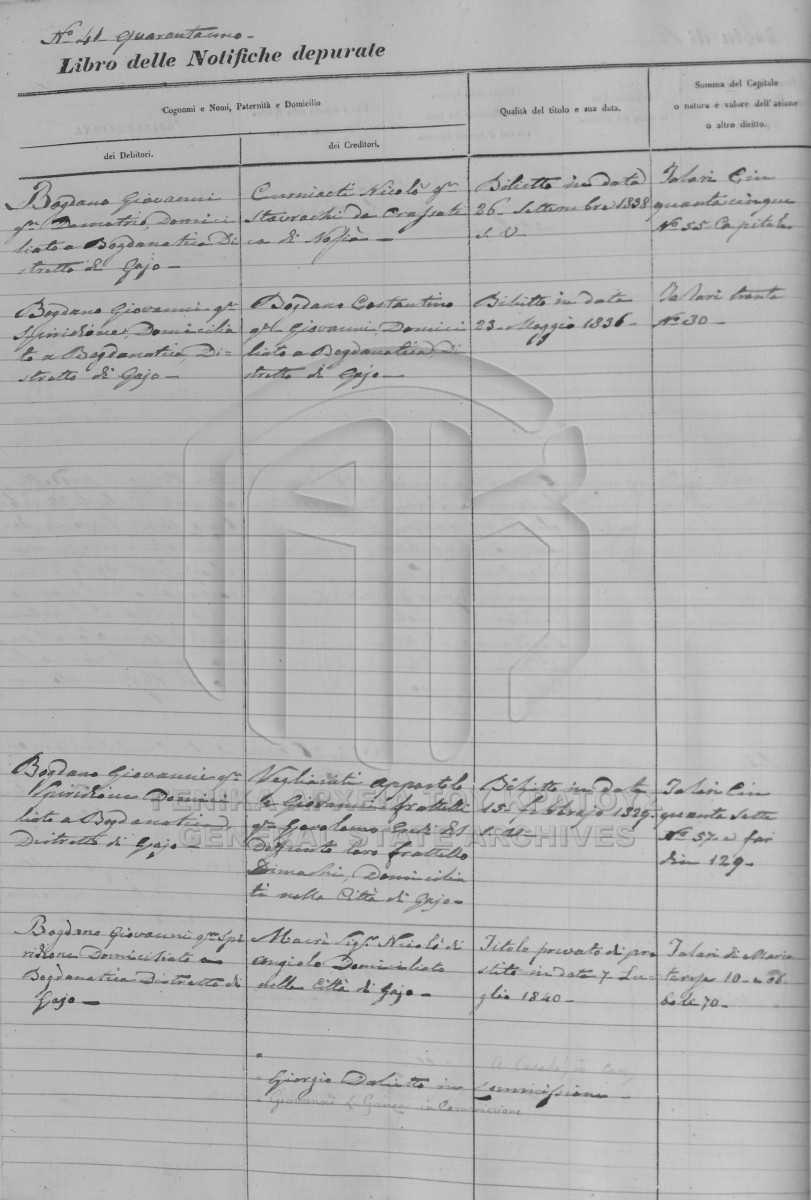 Nº 41 Quarantauno
Libro delle Notifiche depurate
Cognomi e Nomi, Paternità e Domicilio
dei Debitori.
dei Creditori.
Qualità del titolo e sua data.
Somma del Capitale
o natura e valore dell'azione
o altro diritto.
Bogdano Giovanni
qm Demetrio, Domici
liato a Bogdanatica Di
stretto di Gajo
Nicolò qm
Stavrachi da
di
Biglietto in data
26 Settembre 1838
S. V.
Talari Cin
quantacinque
Nº 55 Capitale
Bogdano Giovanni qm
Spiridione, Domicilia
to a Bogdanatica, Di-
stretto di Gajo
Bogdano Costantino
qm Giovanni, Domici
liato a Bogdanatica, Di
stretto di Gajo
Biglietto in data
23 Maggio 1836
Talari trenta
Nº 30
Bogdano Giovanni qm
Spiridione Domici
liato a Bogdanatica
Distretto di Gajo
Veglianiti Appostolo
e Giovanni fratelli
qm Gerolamo
Defunto loro frattello
Domicilia
ti nella Città di Gajo
Biglietto in data
15 febbrajo 1829
S. V.
Talari Cin
quanta sette
Nº 57 e far
din 129
Bogdano Giovanni qm Spi
ridione Domiciliato a
Bogdanatica Distretto di
Gajo
Macrì Sigr Nicolò di
Angiolo Domiciliato
nella Città di Gajo
Titolo privato di pre
stito in data 7 Lu-
glio 1840
Talari di Maria
Teresa 10 e ob
boli 70
Giorgio Dalietto in Commissione
Giovanni in Commissione
ΓΕΝΙΚΑ ΑΡΧΕΙΑ ΤΟΥ ΚΡΑΤΟΥΣ
GENERAL STATE ARCHIVES